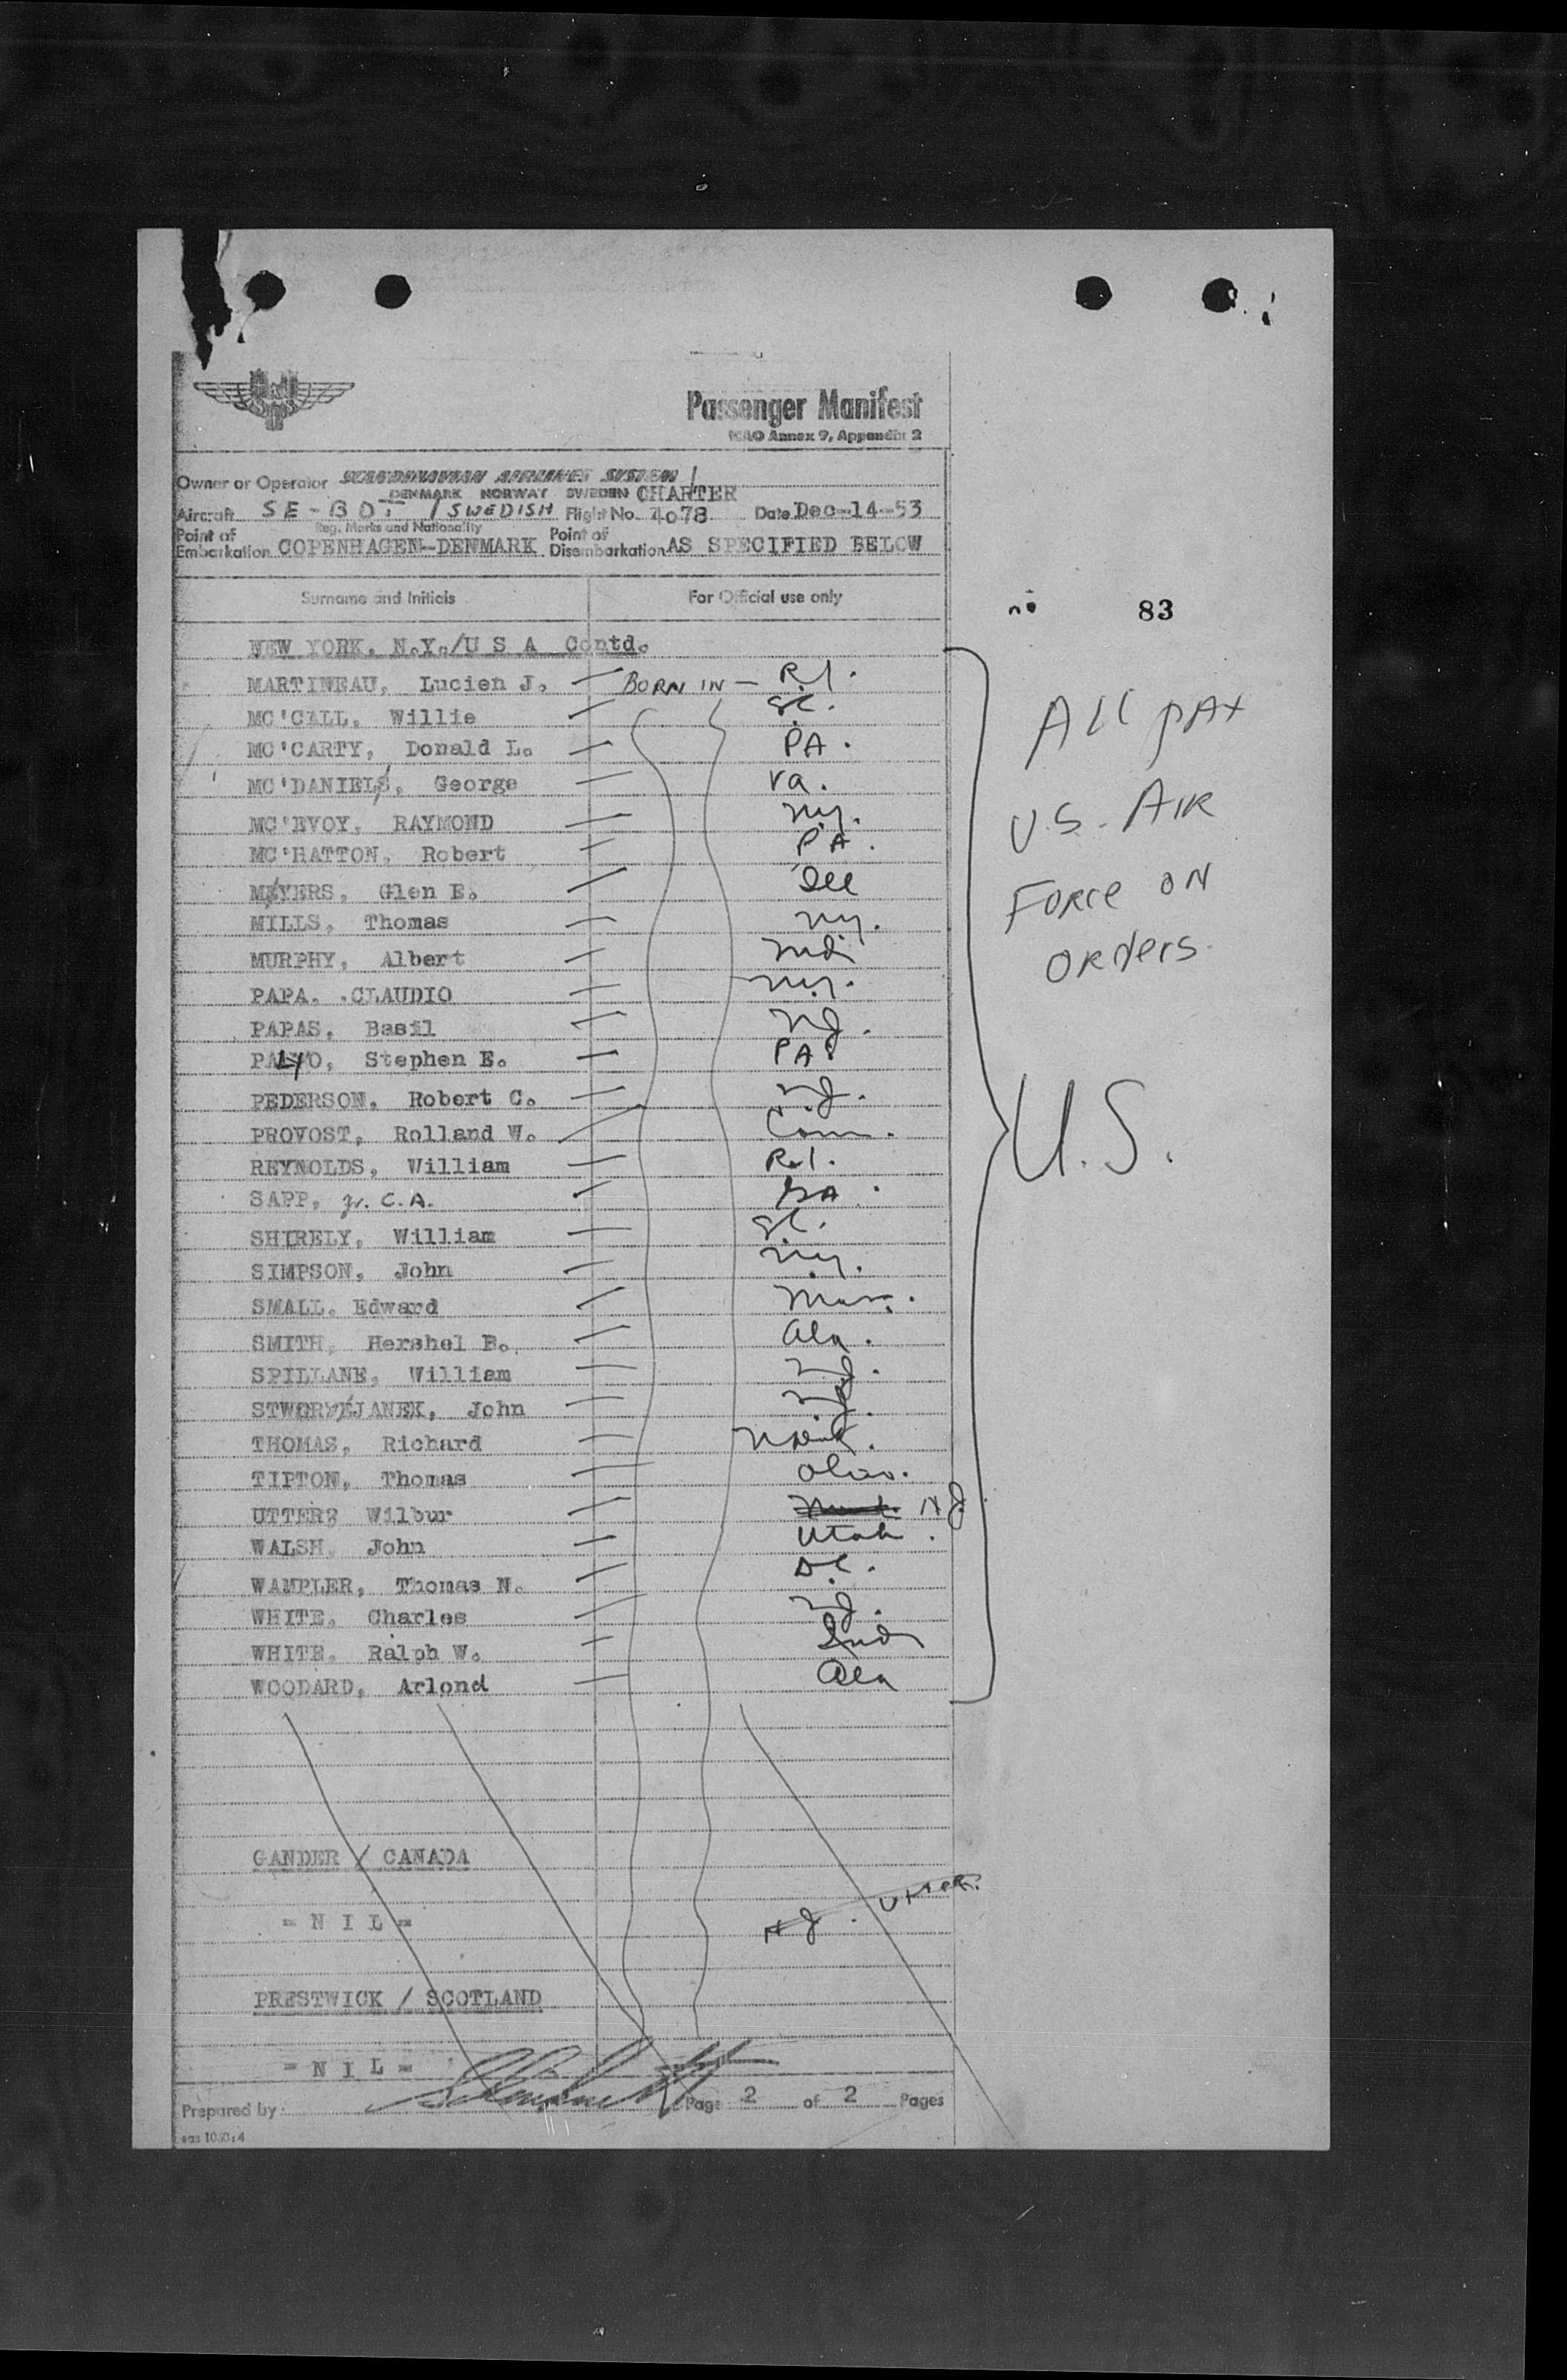 Passenger Manifest
ICAO Annex 9, Appendix 2
Owner or Operator SCANDINAVIAN AIRLINES SYSTEM /
DENMARK NORWAY SWEDEN CHARTER
Aircraft SE-BDI / SWEDISH Flight No. 4078 Date Dec-14-53
Reg. Marks and Nationality
Point of Embarkation COPENHAGEN-DENMARK Point of Disembarkation AS SPECIFIED BELOW
Surname and Initials For Official use only
83
NEW YORK. N.Y./U S A Contd.
MARTINEAU, Lucien J. — BORN IN — R.I.
MC'CALL, Willie — S.C.
MC'CARTY, Donald L. — PA.
MC'DANIELS, George — Va.
MC'EVOY, RAYMOND — N.Y.
MC'HATTON, Robert — PA.
MEYERS, Glen E. — Ill
MILLS, Thomas — N.Y.
MURPHY, Albert — Md
PAPA. .CLAUDIO — N.Y.
PAPAS, Basil — N.J.
PALYO, Stephen E. — PA
PEDERSON, Robert C. — N.J.
PROVOST, Rolland W. — Conn.
REYNOLDS, William — R.I.
SAPP, Jr. C.A. — GA.
SHIRELY, William — S.C.
SIMPSON, John — N.Y.
SMALL. Edward — Mass.
SMITH, Hershel B. — Ala.
SPILLANE, William — N.J.
JANEK, John — N.J.
THOMAS, Richard —
TIPTON, Thomas — Ohio.
UTTER, Wilbur — NJ
WALSH, John — Utah.
WAMPLER, Thomas N. — D.C.
WHITE, Charles — N.J.
WHITE, Ralph W. — Ind
WOODARD, Arlond — Ala
All PAX
U.S. AIR
FORCE ON
ORders.
U.S.
GANDER / CANADA
= N I L =
NJ. Utter.
PRESTWICK / SCOTLAND
= N I L =
Prepared by: Page 2 of 2 Pages